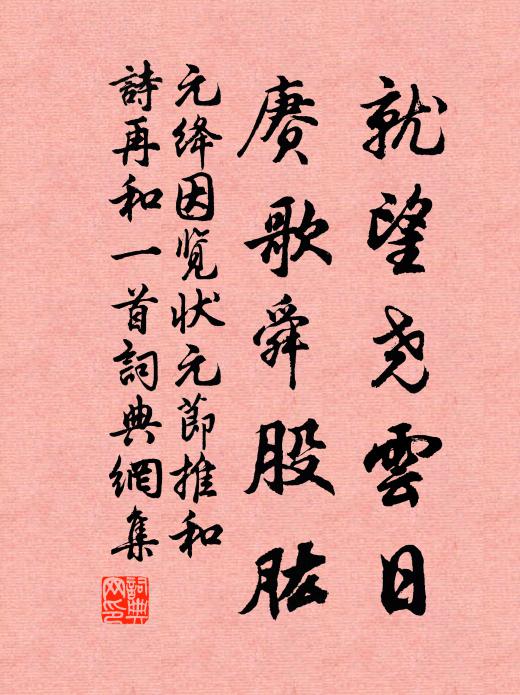 就望尧雲日
赓歌舜股肱
元绛因览状元節推和
詩再和一首詞典網集
詞典